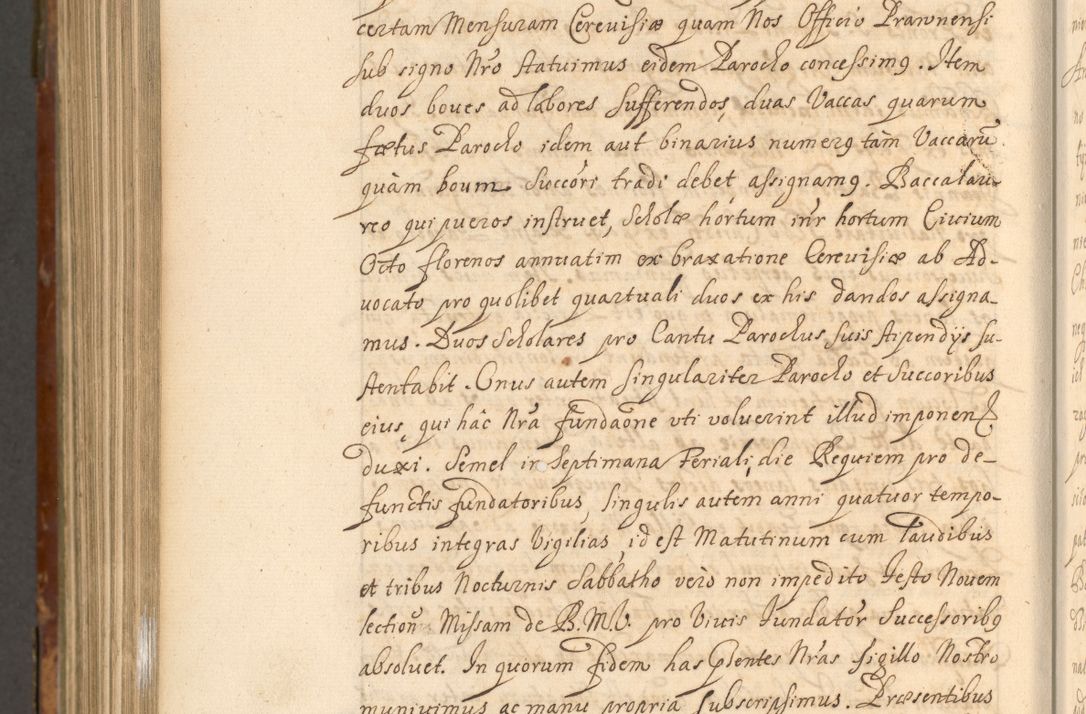 certam Mensuram Cerevisiæ quam Nos Officio Prawnensi
sub signo Nro statuimus eidem Parocho concessimq. Item
duos boves ad labores sufferendos, duas Vaccas quarum
fœtus Parocho idem aut binarius numerq tàm Vaccarū
quàm boum Succōri tradi debet assignamq. Baccalau-
reo qui pueros instruet, Scholæ hortum inr hortum Civium
Octo florenos annuatim ex braxatione Cerevisiæ ab Ad-
vocato pro quolibet quartuali duos ex his dandos assigna-
mus. Duos Scholares pro Cantu Parochus suis stipendijs su-
stentabit. Onus autem singulariter Parocho et Succoribus
eius, qui hâc Nrâ fundaōne uti voluerint illud imponen
duxi. Semel in Septimana Feriali die Requiem pro de-
functis fundatoribus, singulis autem anni quatuor tempo-
ribus integras Vigilias, id est Matutinum cum Laudibus
et tribus Nocturnis Sabbatho vero non impedito festo Novem
lectionū Missam de B.M.V. pro Vivis fundatōr Successoribq
absolvet. In quorum fidem has Pñtes Nras sigillo Nostro
munivimus ac manu propria subscripsimus. Præsentibus